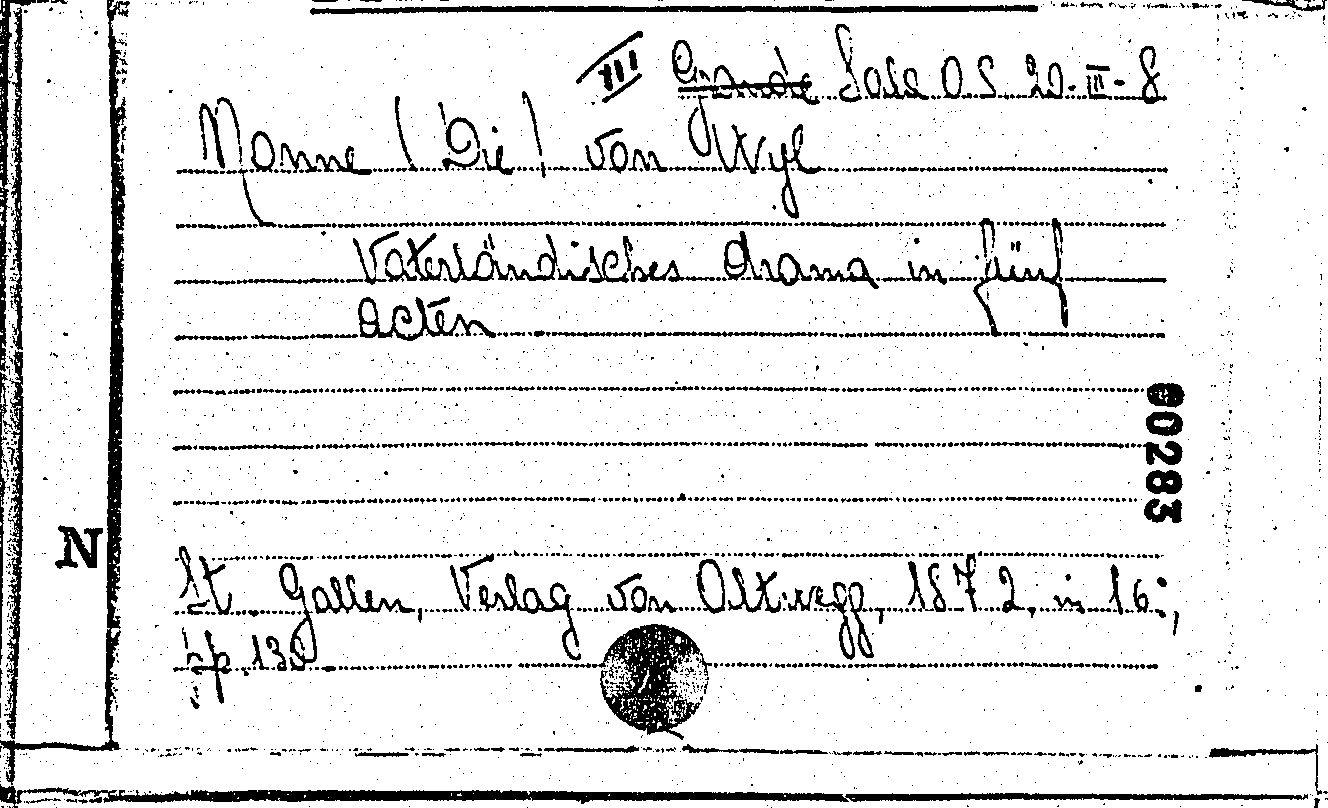 III Grande Sala O S 20-III-8
Nonne (Die) von Wyl
Vaterländisches drama in fünf
acten
00283
N
St. Gallen, Verlag von Altwegg, 1872, in 16°,
pp.